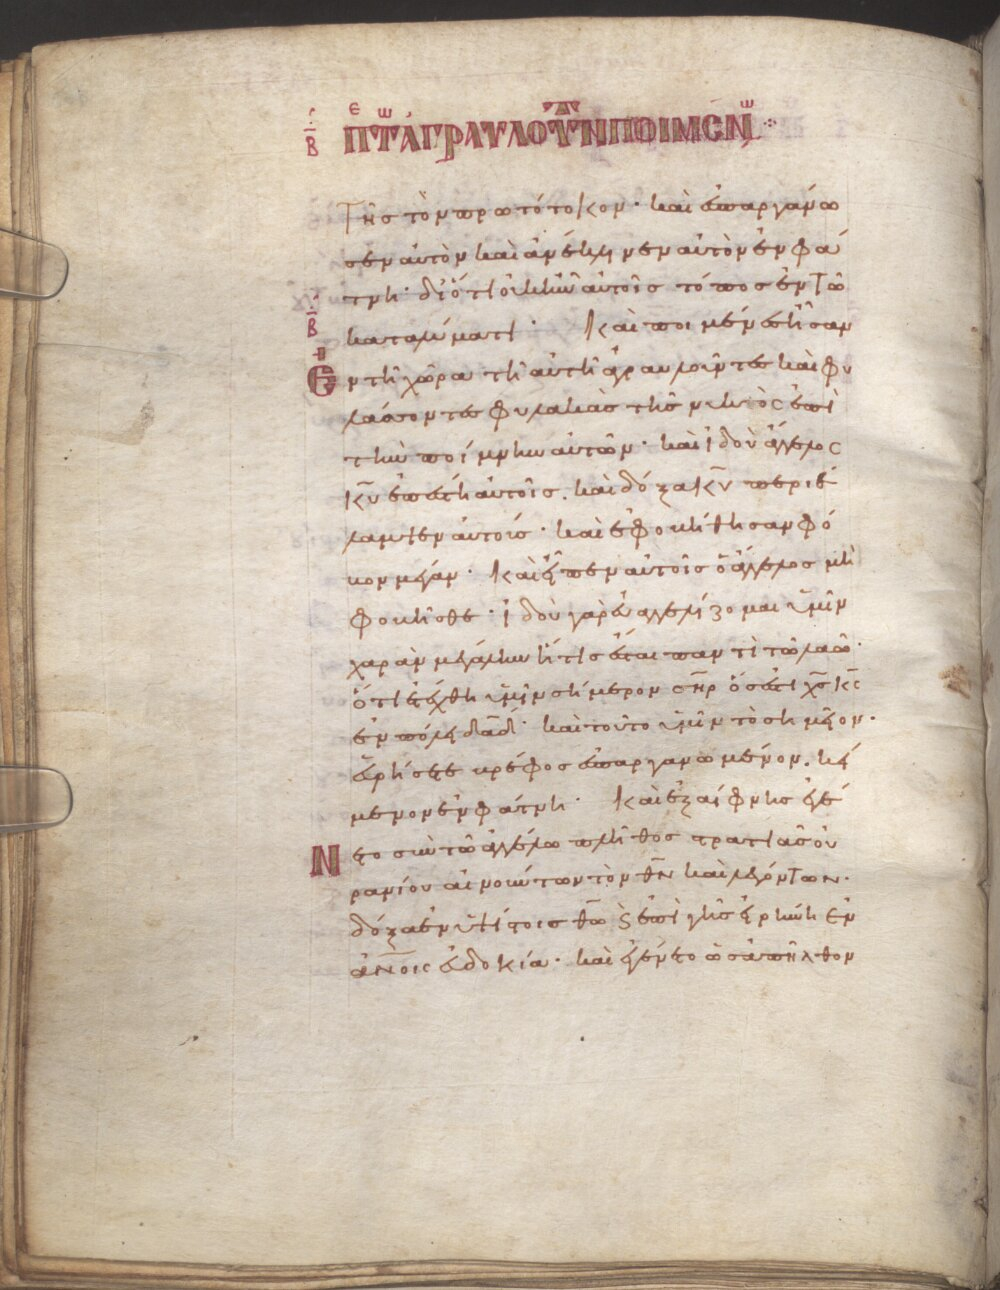 Β ΠΕΡΙ ΤΩΝ ΑΓΡΑΥΛΟΥΝΤΩΝ ΠΟΙΜΕΝΩΝ
τῆς τὸν πρωτότοκον· καὶ ἐσπαργάνω
σεν αὐτὸν καὶ ἀνέκλινεν αὐτὸν ἐν φά
τνη· διότι οὐκ ἦν αὐτοῖς τόπος ἐν τῶ
Β καταλύματι· Καὶ ποιμένες ἦσαν
Εν τῆ χώρα τῆ αὐτῆ ἀγραυλοῦντες καὶ φυ
λάσσοντες φυλακὰς τῆς νυκτὸς ἐπὶ
τὴν ποίμνην αὐτῶν· καὶ ἰδοὺ ἄγγελος
κ̅υ̅ ἐπέστη αὐτοῖς. καὶ δόξα κ̅υ̅ περιέ
λαμψεν αὐτούς· καὶ ἐφοβήθησαν φό
βον μέγαν· Καὶ εἶπεν αὐτοῖς ὁ ἄγγελος μὴ
φοβῆσθε· ἰδοὺ γὰρ εὐαγγελίζομαι ὑμῖν
χαρὰν μεγάλην ἥτις ἔσται παντὶ τῶ λαῶ·
ὅτι ἐτέχθη ὑμῖν σήμερον σ̅η̅ρ̅ ὅς ἐστι χ̅ς̅ κ̅ς̅
ἐν πόλει δα̅δ̅· καὶ τοῦτο ὑμῖν τὸ σημεῖον·
εὑρήσετε βρέφος ἐσπαργανωμένον. κεί
μενον ἐν φάτνη· Καὶ ἐξαίφνης ἐγέ
Νετο σὺν τῶ ἀγγέλω πλῆθος στρατιᾶς οὐ
ρανίου αἰνούντων τὸν θ̅ν̅ καὶ λεγόντων·
δόξα ἐν ὑψίστοις θ̅ω̅ ϛ ἐπὶ γῆς εἰρήνη ἐν
ἀ̅ν̅ο̅ι̅ς̅ εὐδοκία· καὶ ἐγένετο ὡς ἀπῆλθον